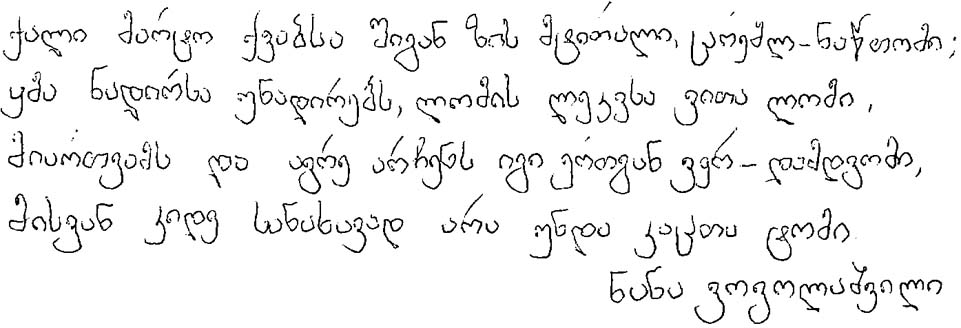 ქალი მარტო ქვაბსა შიგან ზის მტირალი, ცრემლ-ნაწთომი;
ყმა ნადირსა უნადირებს, ლომის ლეკვსა ვითა ლომი,
მიართვამს და აგრე არჩენს იგი ერთგან ვერ-დამდგომი,
მისგან კიდე სანახავად არა უნდა კაცთა ტომი.
ნანა გოგოლაშვილი